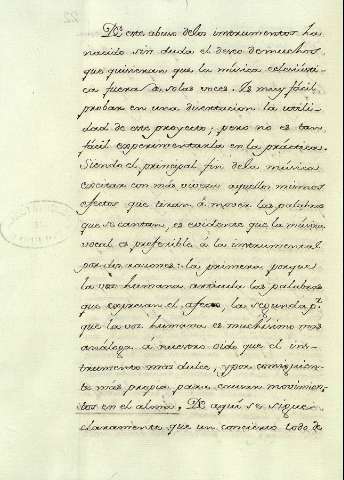 De este abuso delos instrumentos ha
nacido sin duda el deseo de muchos,
que quisieran que la música eclesiásti-
ca fuera de solas voces. Es muy fácil
probar en una disertacion la utili-
dad de este proyecto; pero no es tan
fácil experimentarla en la práctica.
Siendo el principal fin dela música
excitar con más viveza aquellos mismos
efectos que tiran á mover las palabras
que se cantan, es evidente que la música
vocal es preferible á la instrumental
por dos razones: la primera porque
la voz humana articula las palabras
que expresan el afecto, la segunda p.r
que la voz humana es muchísimo más
análoga á nuestro oido que el ins-
trumento más dulce, y por consiguien-
te más propia para causar movimien-
tos en el alma. De aquí se sigue
claramente que un concierto todo de